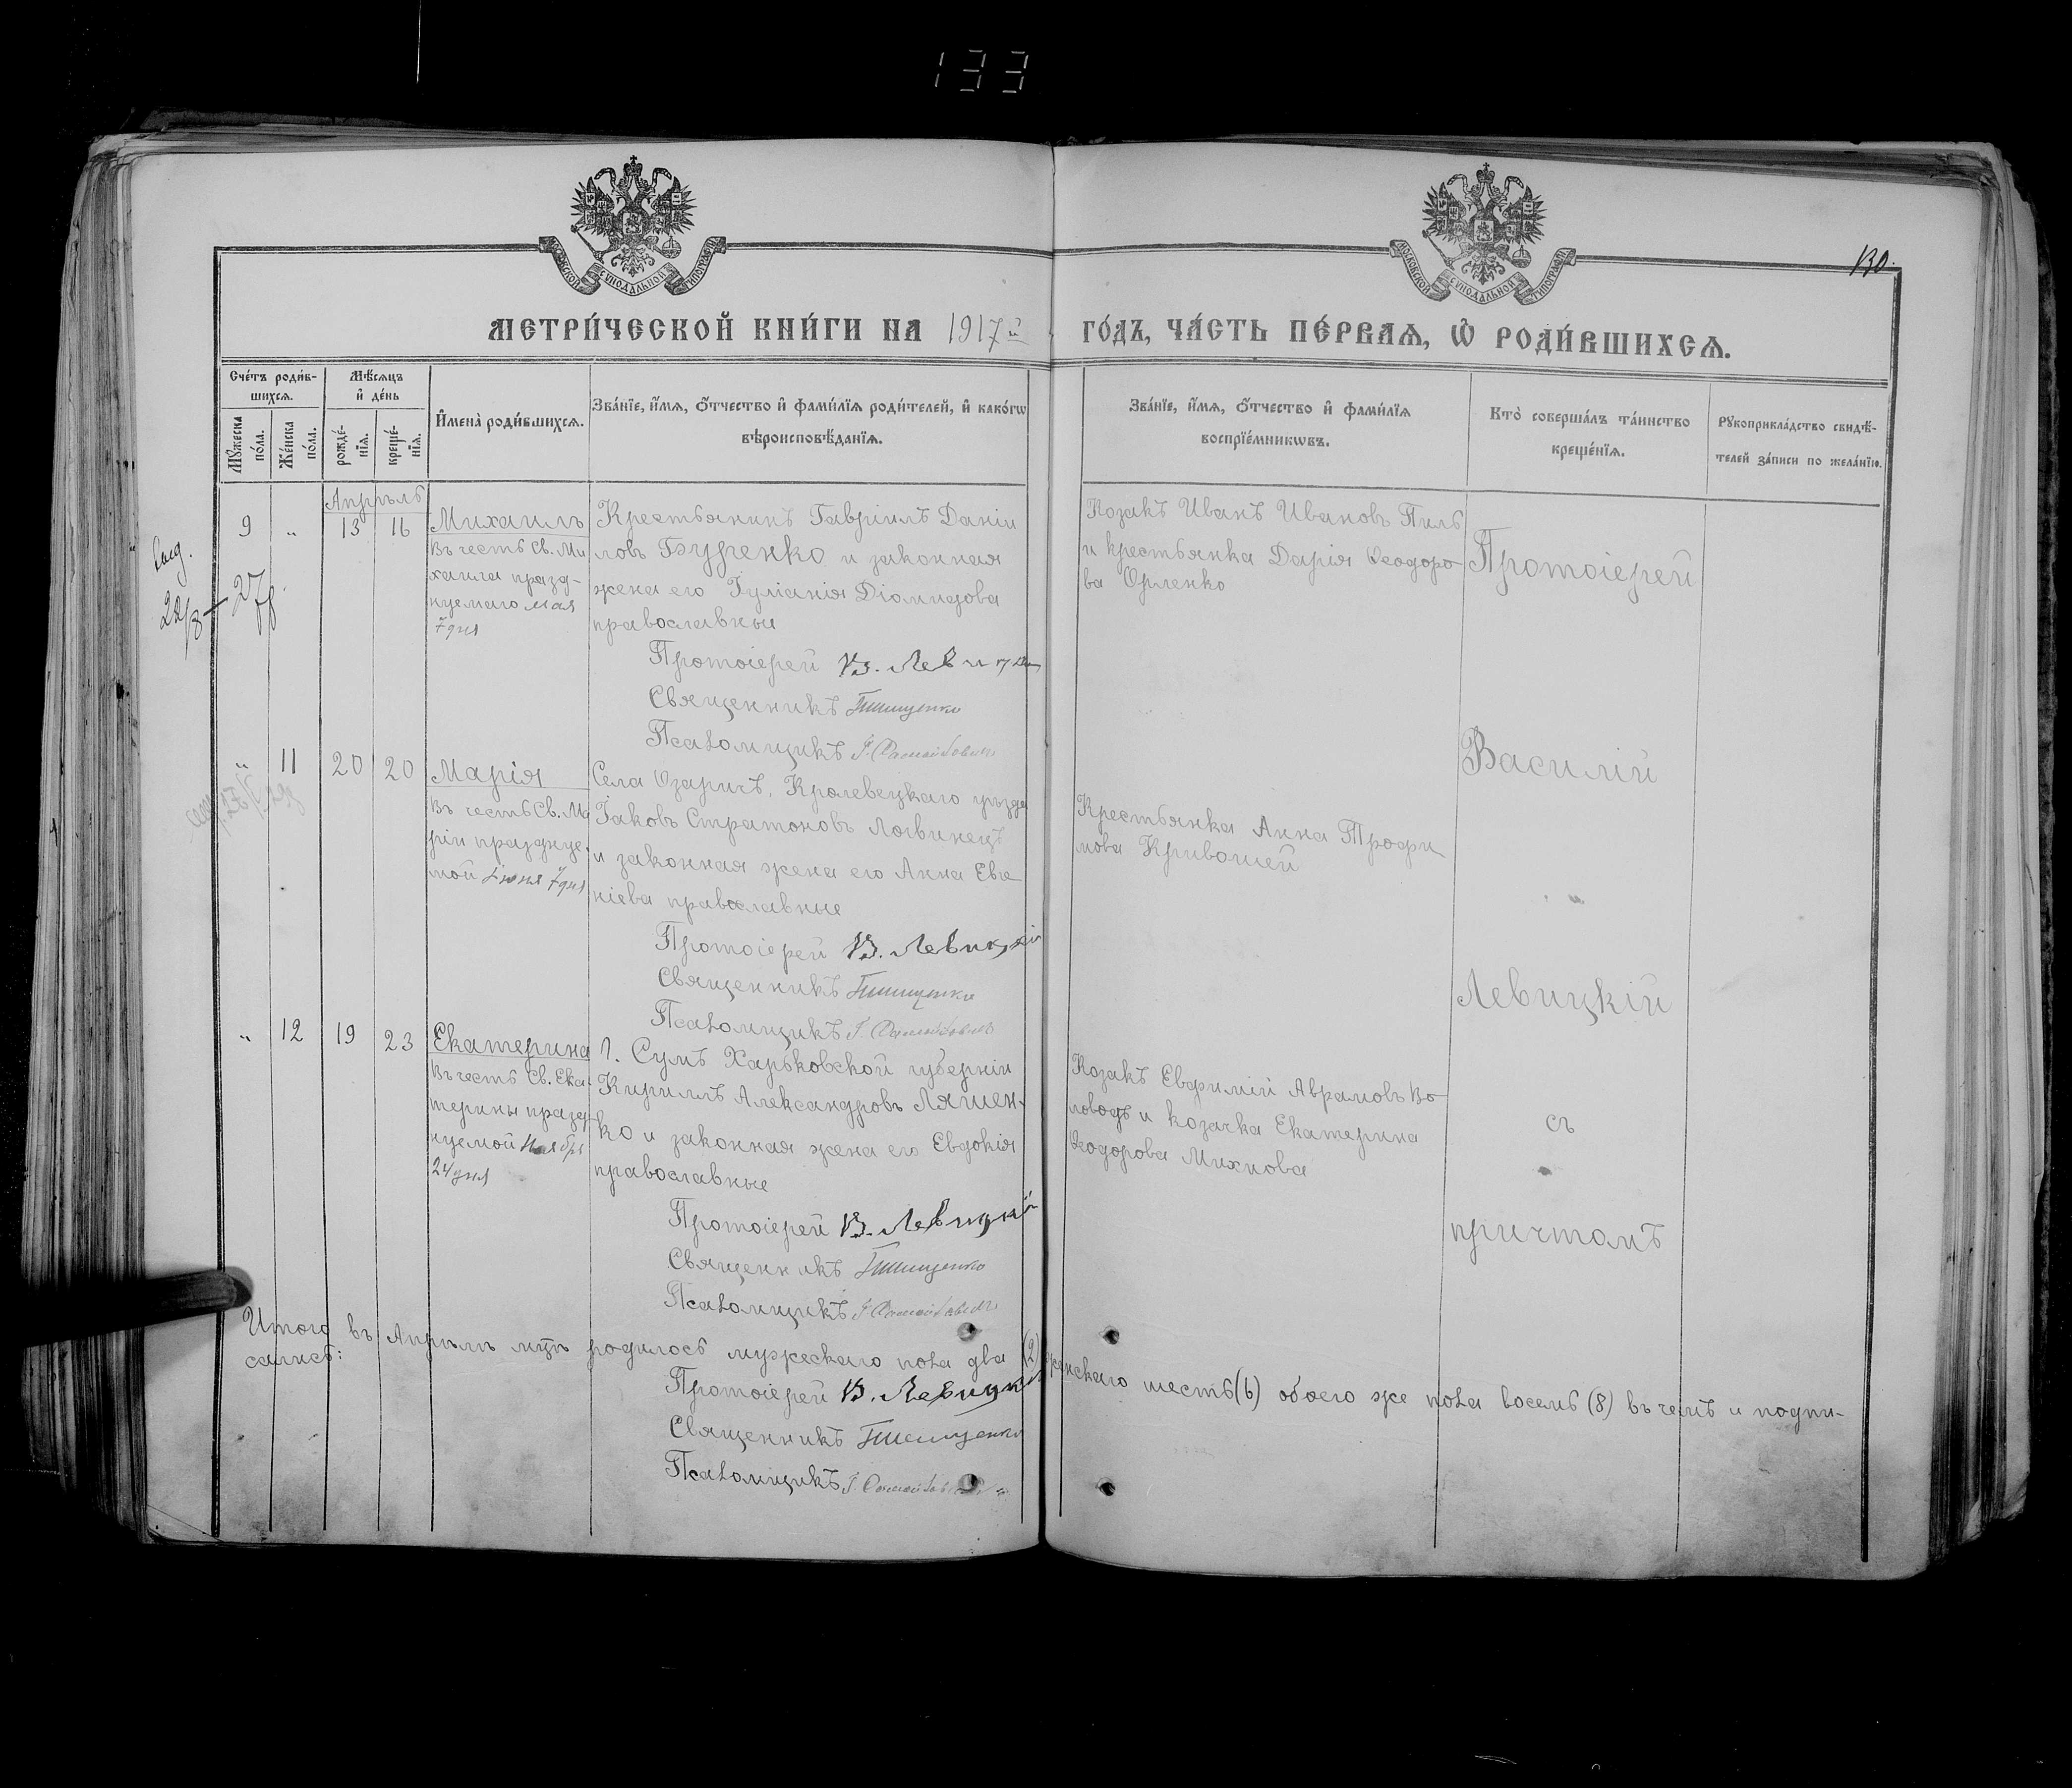 133
МОСКОВСКОЙ СѴНОДАЛЬНОЙ ТИПОГРАФІИ
МОСКОВСКОЙ СѴНОДАЛЬНОЙ ТИПОГРАФІИ
130.
МЕТРИ́ЧЕСКОЙ КНИ́ГИ НА 1917й ГО́ДЪ, ЧА́СТЬ ПЕ́РВАѦ, Ѡ РОДИ́ВШИХСѦ.
Сче́тъ роди́в-
шихсѧ.
Мѣ́сѧцъ
и҆ де́нь
Мꙋ́жеска
по́ла.
Же́нска
по́ла.
рожде́-
нїѧ.
креще́-
нїѧ.
И҆мена̀ роди́вшихсѧ.
Зва́нїе, и҆́мѧ, ѻ҆́тчество и҆ фами́лїѧ роди́телей, и҆ како́гѡ
вѣроисповѣ́данїѧ.
Зва́нїе, и҆́мѧ, ѻ҆́тчество и҆ фами́лїѧ
воспрїе́мникѡвъ.
Кто̀ соверша́лъ та́инство
креще́нїѧ.
Рꙋкоприкла́дство свидѣ́-
телей за́писи по жела́нїю.
Апрѣль
9 „ 13 16
Михаилъ
Въ честь Св. Ми
хаила празд-
нуемаго мая
7 дня
Крестьянинъ Гавріилъ Даніи
ловъ Буренко и законная
жена его Іуліанія Діомидова
православные
Протоіерей В. Левицкій
Священникъ Тимищенко
Псаломщикъ
Козакъ Иванъ Ивановъ Пиль
и крестьянка Дарія Ѳеодоро-
ва Орленко
Протоіерей
22/8 – 27 г.
„ 11 20 20
Марія
Въ честь Св. Ма
ріи празднуе-
мой Іюня 7 дня
Села Озаричъ, Кролевецкаго уѣзда
Іаковъ Стратоновъ Логвинецъ
и законная жена его Анна Евге
ніева православные
Протоіерей В. Левицкій
Священникъ Тимищенко
Псаломщикъ
Василій
Крестьянка Анна Трофи
мова Кривошей
Левицкій
„ 12 19 23
Екатерина
Въ честь Св. Ека-
терины празд-
нуемой Ноября
24 дня
Г. Сумъ Харьковской губерніи
Кириллъ Александровъ Ляшен-
ко и законная жена его Евдокія
православные
Протоіерей В. Левицкій
Священникъ Тимищенко
Псаломщикъ
Козакъ Евфимій Аврамовъ Во-
ловодъ и козачка Екатерина
Ѳеодорова Михнова
съ
причтомъ
Итого въ Апрѣлѣ мцѣ родилось мужескаго пола два (2) женскаго шесть (6) обоего же пола восемь (8) въ чемъ и подпи-
сались:
Протоіерей В. Левицкій
Священникъ Тимищенко
Псаломщикъ